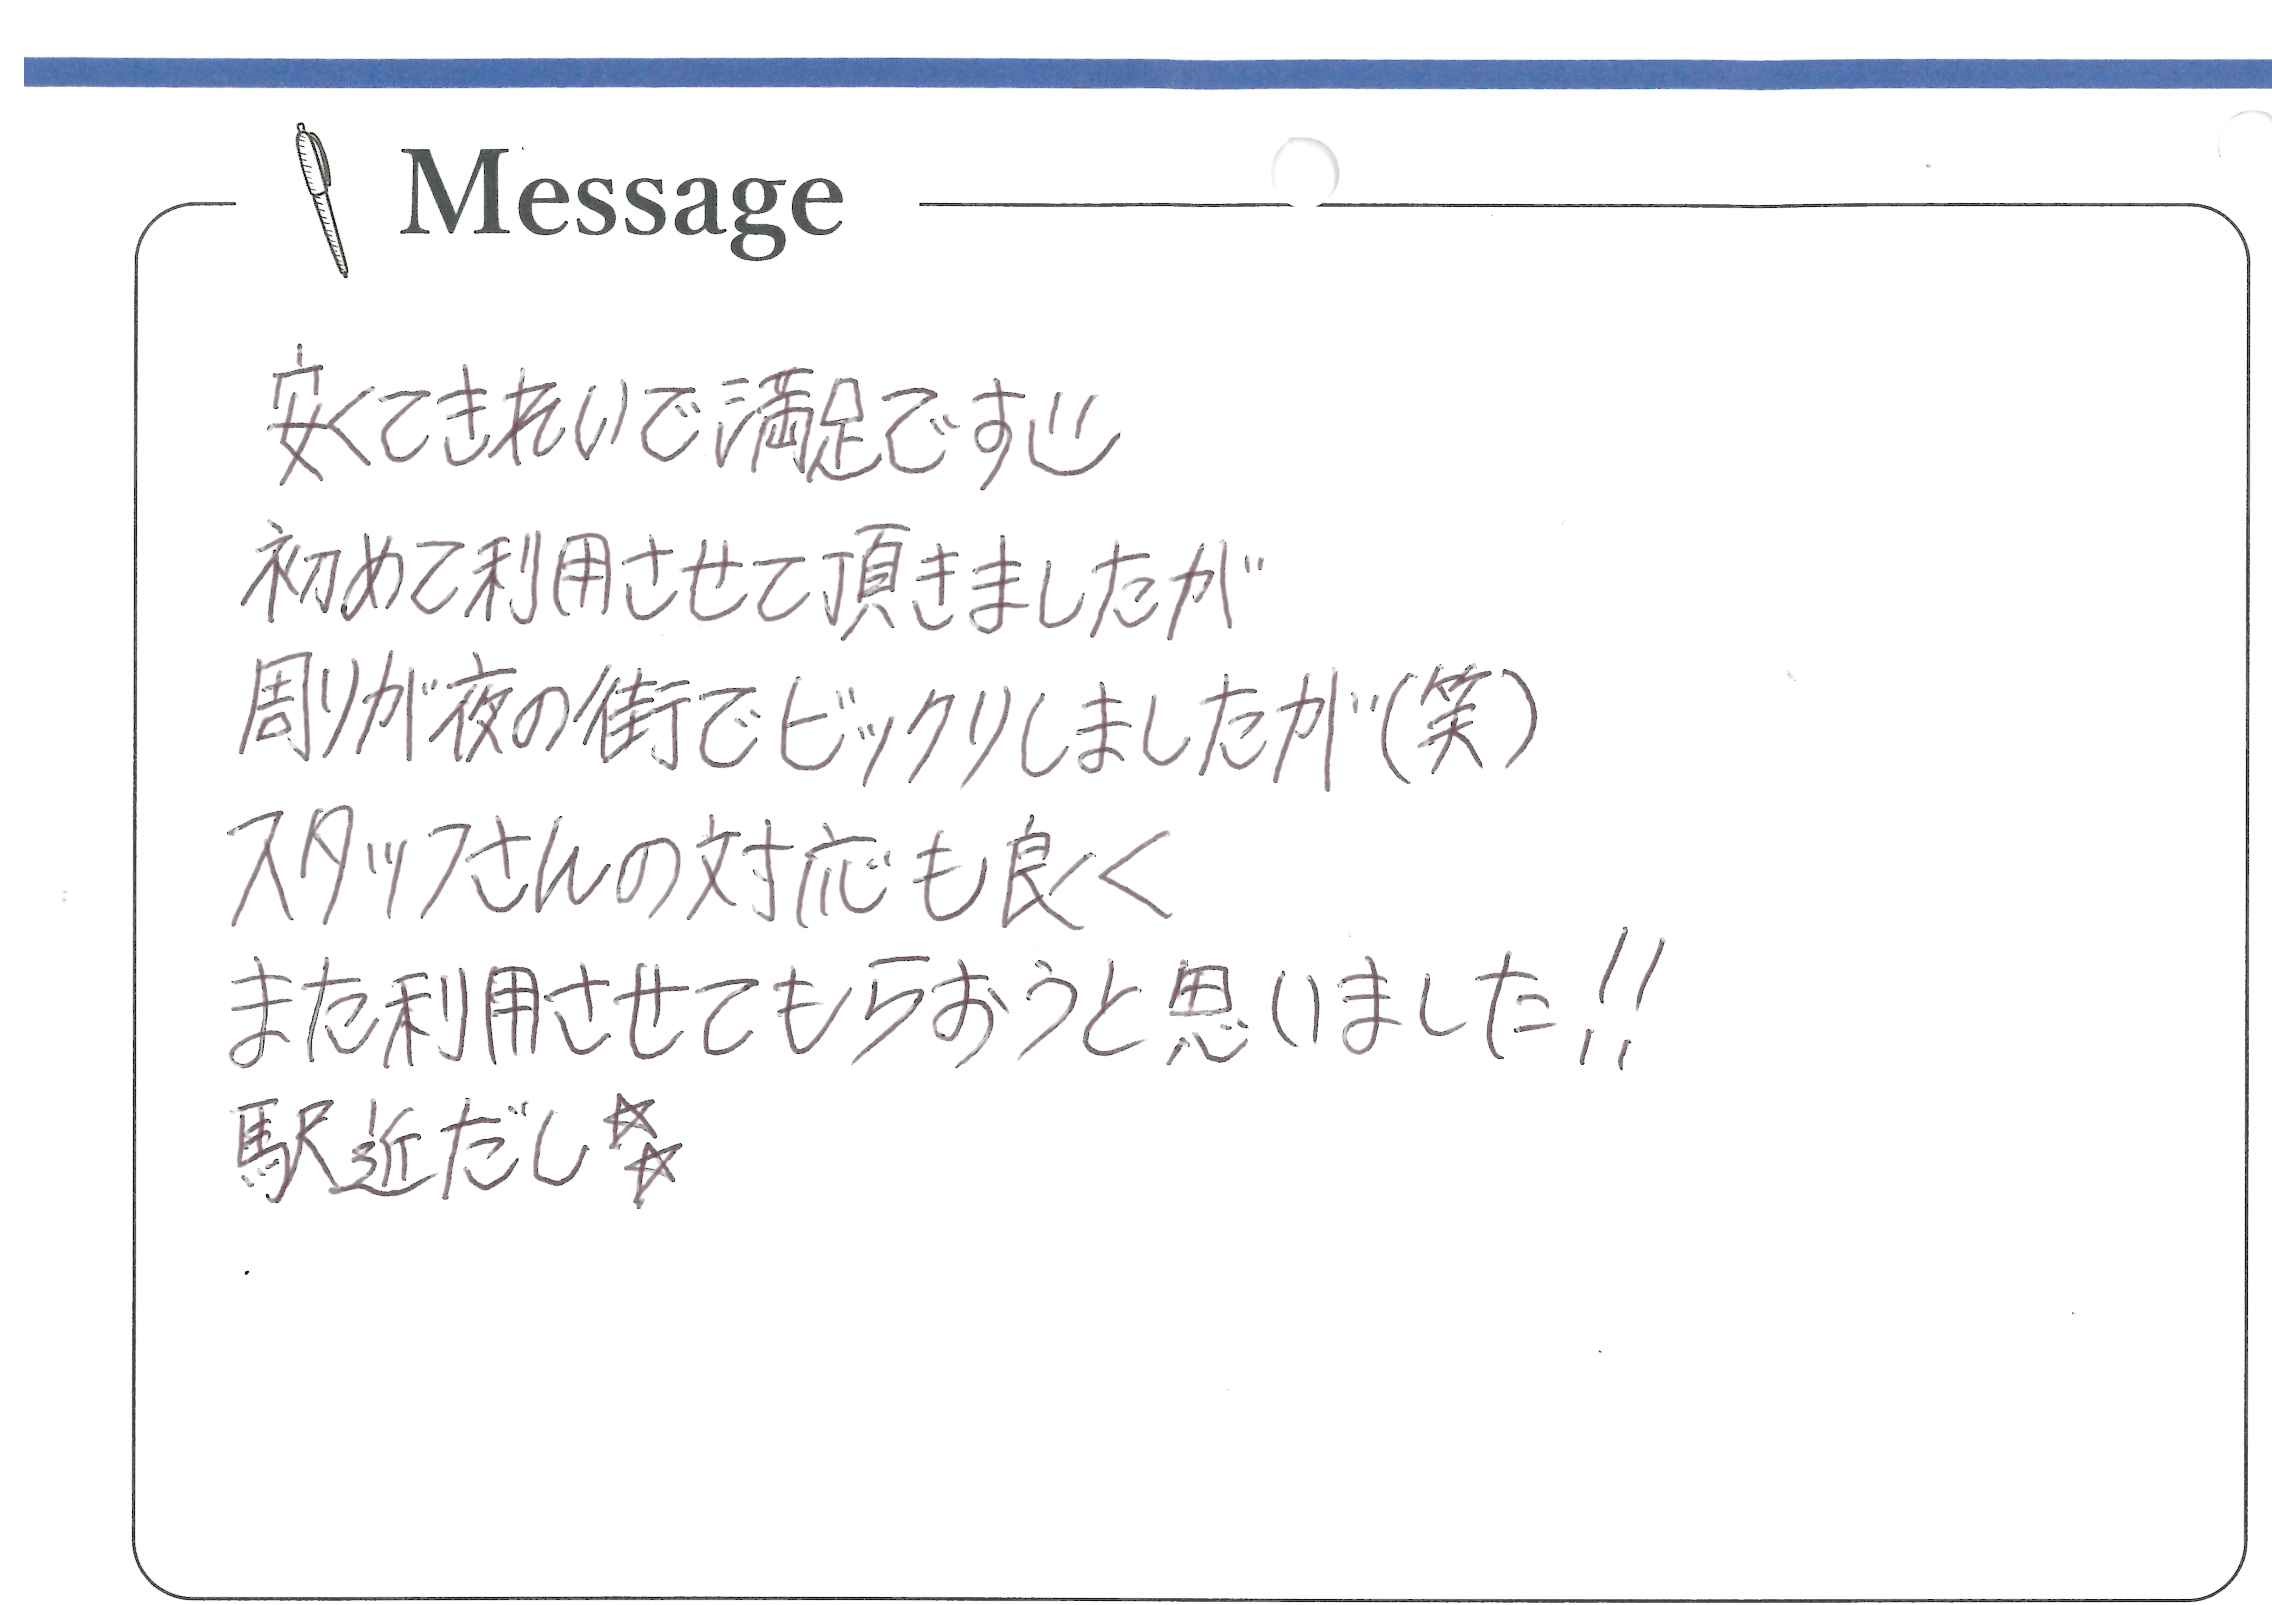 Message
安くてきれいで満足です
初めて利用させて頂きましたが
周りが夜の街でビックリしましたが(笑)
スタッフさんの対応も良く
また利用させてもらおうと思いました!!
駅近だし☆☆